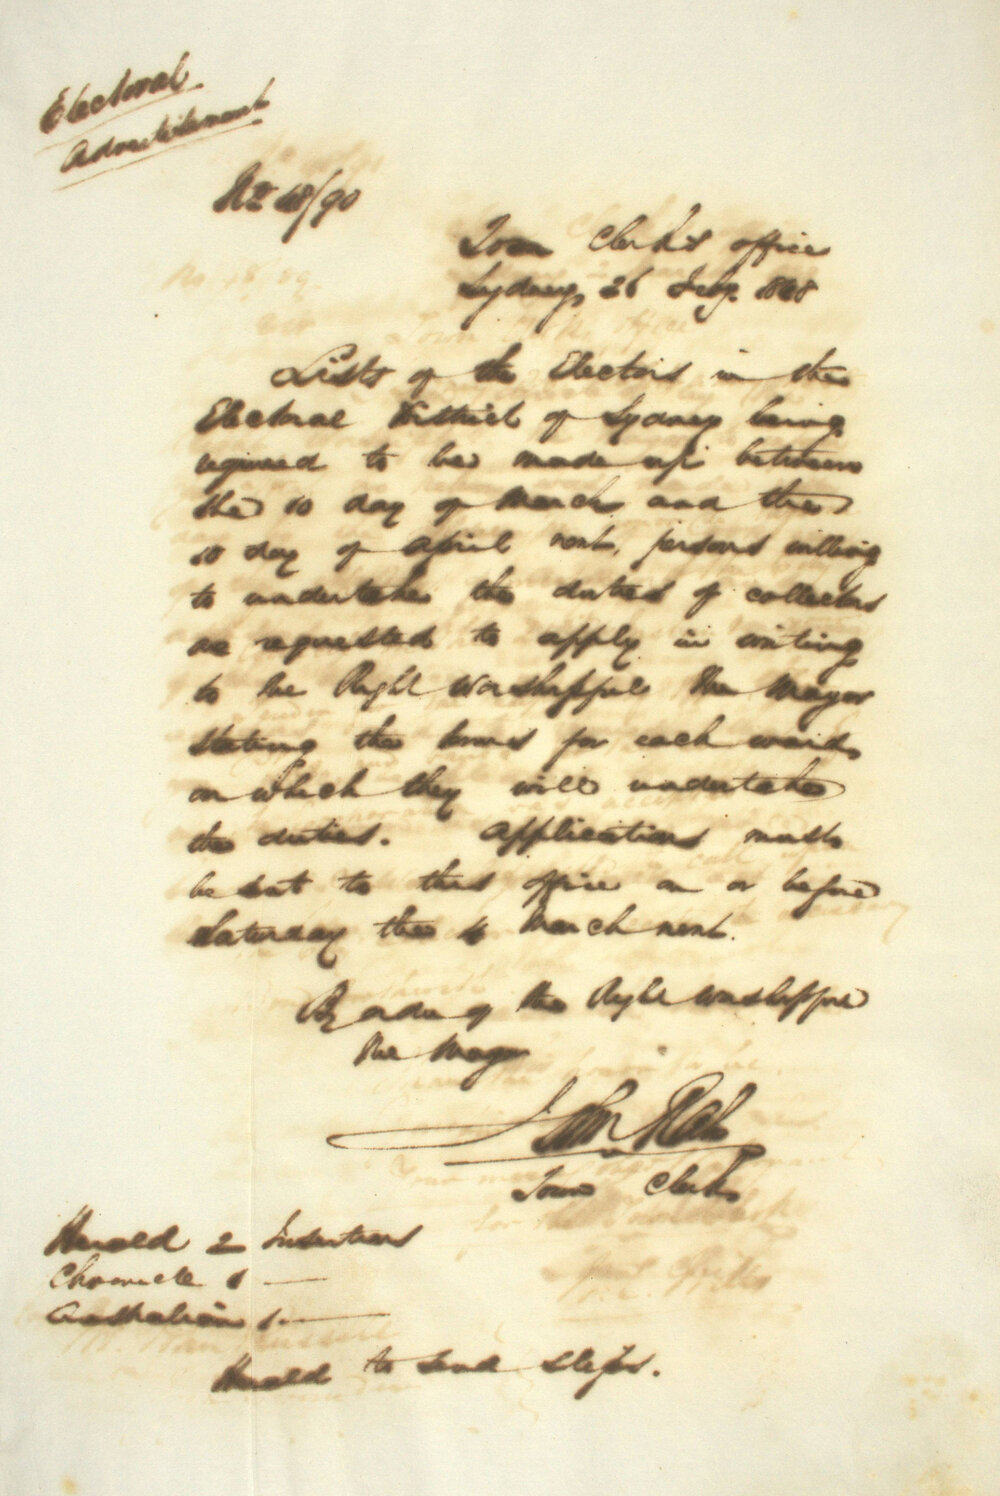 Electoral
Advertisement
No 48/90
Town Clerk's office
Sydney, 26 Feby. 1848
Lists of the Electors in the
Electoral District of Sydney being
required to be made up between
the 10 day of March and the
10 day of April next, persons willing
to undertake the duties of collectors
are requested to apply in writing
to the Right Worshipful the Mayor
stating the terms for each ward
on which they will undertake
the duties. Applications must
be sent to this office on or before
Saturday the 4 March next.
By order of the Right Worshipful
the Mayor
John Rae
Town Clerk
Herald 2 Insertions
Chronicle 1 —
Australian 1 —
Herald to send slips.